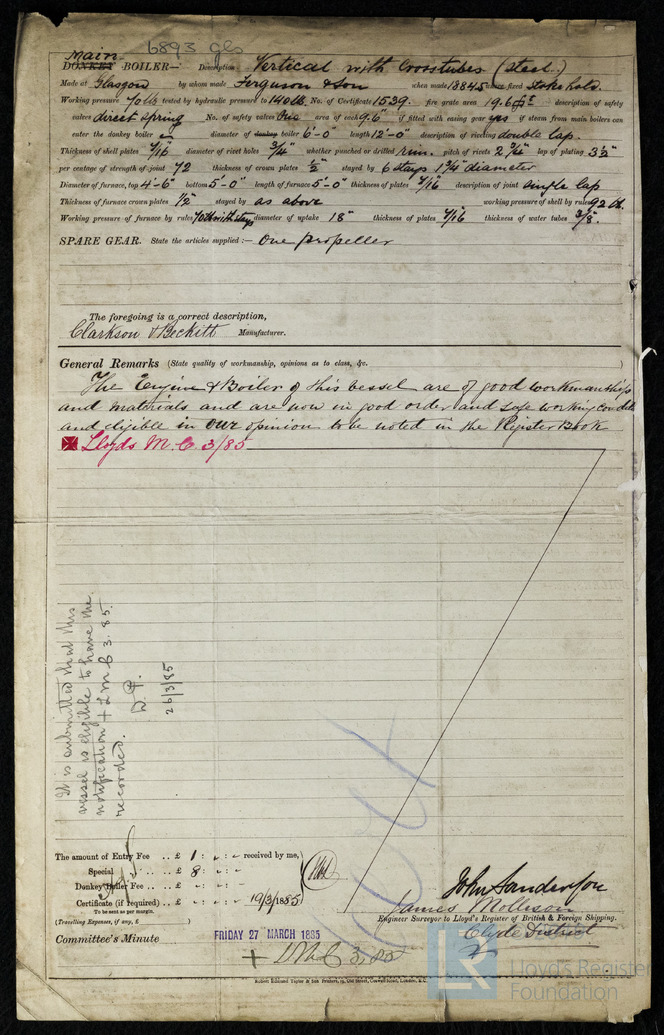 6893 gls
Main
DONKEY BOILER— Description Vertical with Crosstubes (Steel.)
Made at Glasgow by whom made Ferguson & Son when made 1884.5 where fixed Stokehold.
Working pressure 70 lb tested by hydraulic pressure to 140 lb. No. of Certificate 1539. fire grate area 19.6 description of safety
valves direct spring No. of safety valves One area of each 9.6" if fitted with easing gear yes if steam from main boilers can
enter the donkey boiler diameter of donkey boiler 6'-0" length 12'-0" description of riveting double lap.
Thickness of shell plates 7/16 diameter of rivet holes 3/4" whether punched or drilled pitch of rivets lap of plating 3 1/2"
per centage of strength of joint 72 thickness of crown plates 1/2" stayed by 6 stays 1 3/4" diameter
Diameter of furnace, top 4'-6" bottom 5'-0" length of furnace 5'-0" thickness of plates 7/16 description of joint single lap
Thickness of furnace crown plates 1/2" stayed by as above working pressure of shell by rules 92 lb.
Working pressure of furnace by rules 70 lb with stays diameter of uptake 18" thickness of plates 7/16 thickness of water tubes 3/8".
SPARE GEAR. State the articles supplied:— One propeller
The foregoing is a correct description,
Clarkson & Beckitt Manufacturer.
General Remarks (State quality of workmanship, opinions as to class, &c.
The Engine & Boiler of this vessel are of good workmanship
and materials and are now in good order and safe working condtn
and eligible in our opinion to be noted in the Register Book
Lloyds M.C 3/85
It is submitted that this
vessel is eligible to have the
notification + LMC 3.85.
recorded.
26/3/85
The amount of Entry Fee .. £ 1 : - : - received by me,
Special .. £ 8 : - : -
Donkey Boiler Fee .. £ - : - : -
Certificate (if required) .. £ - : - : - 19/3/1885
To be sent as per margin.
(Travelling Expenses, if any, £ )
John Sanderson
James Mollison
Engineer Surveyor to Lloyd's Register of British & Foreign Shipping.
Clyde District
Committee's Minute FRIDAY 27 MARCH 1885
+ LMC 3.85
Robert Edmund Taylor & Son Printers, 19, Old Street, Goswell Road, London, E.C.
LR
Lloyd's Register
Foundation